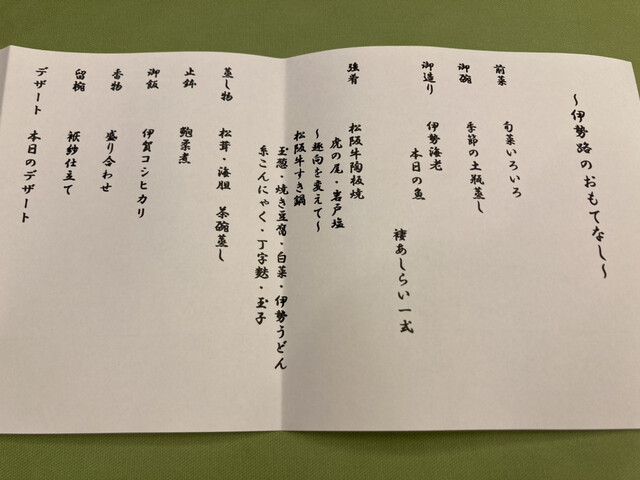 ～伊勢路のおもてなし～
前菜　旬菜いろいろ
御碗　季節の土瓶蒸し
御造り　伊勢海老
本日の魚
褄あしらい一式
強肴　松阪牛陶板焼
虎の尾・岩戸塩
～趣向を変えて～
松阪牛すき鍋
玉葱・焼き豆腐・白菜・伊勢うどん
糸こんにゃく・丁字麩・玉子
蒸し物　松茸・海胆　茶碗蒸し
止鉢　鮑柔煮
御飯　伊賀コシヒカリ
香物　盛り合わせ
留椀　袱紗仕立て
デザート　本日のデザート